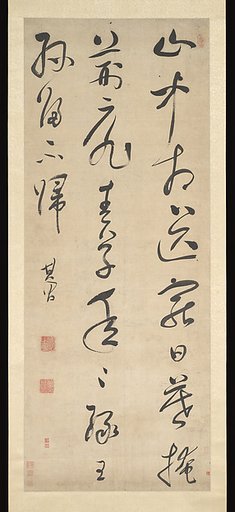 山中相送罷日暮掩
柴扉春草年〻綠王
孫歸不歸
其昌